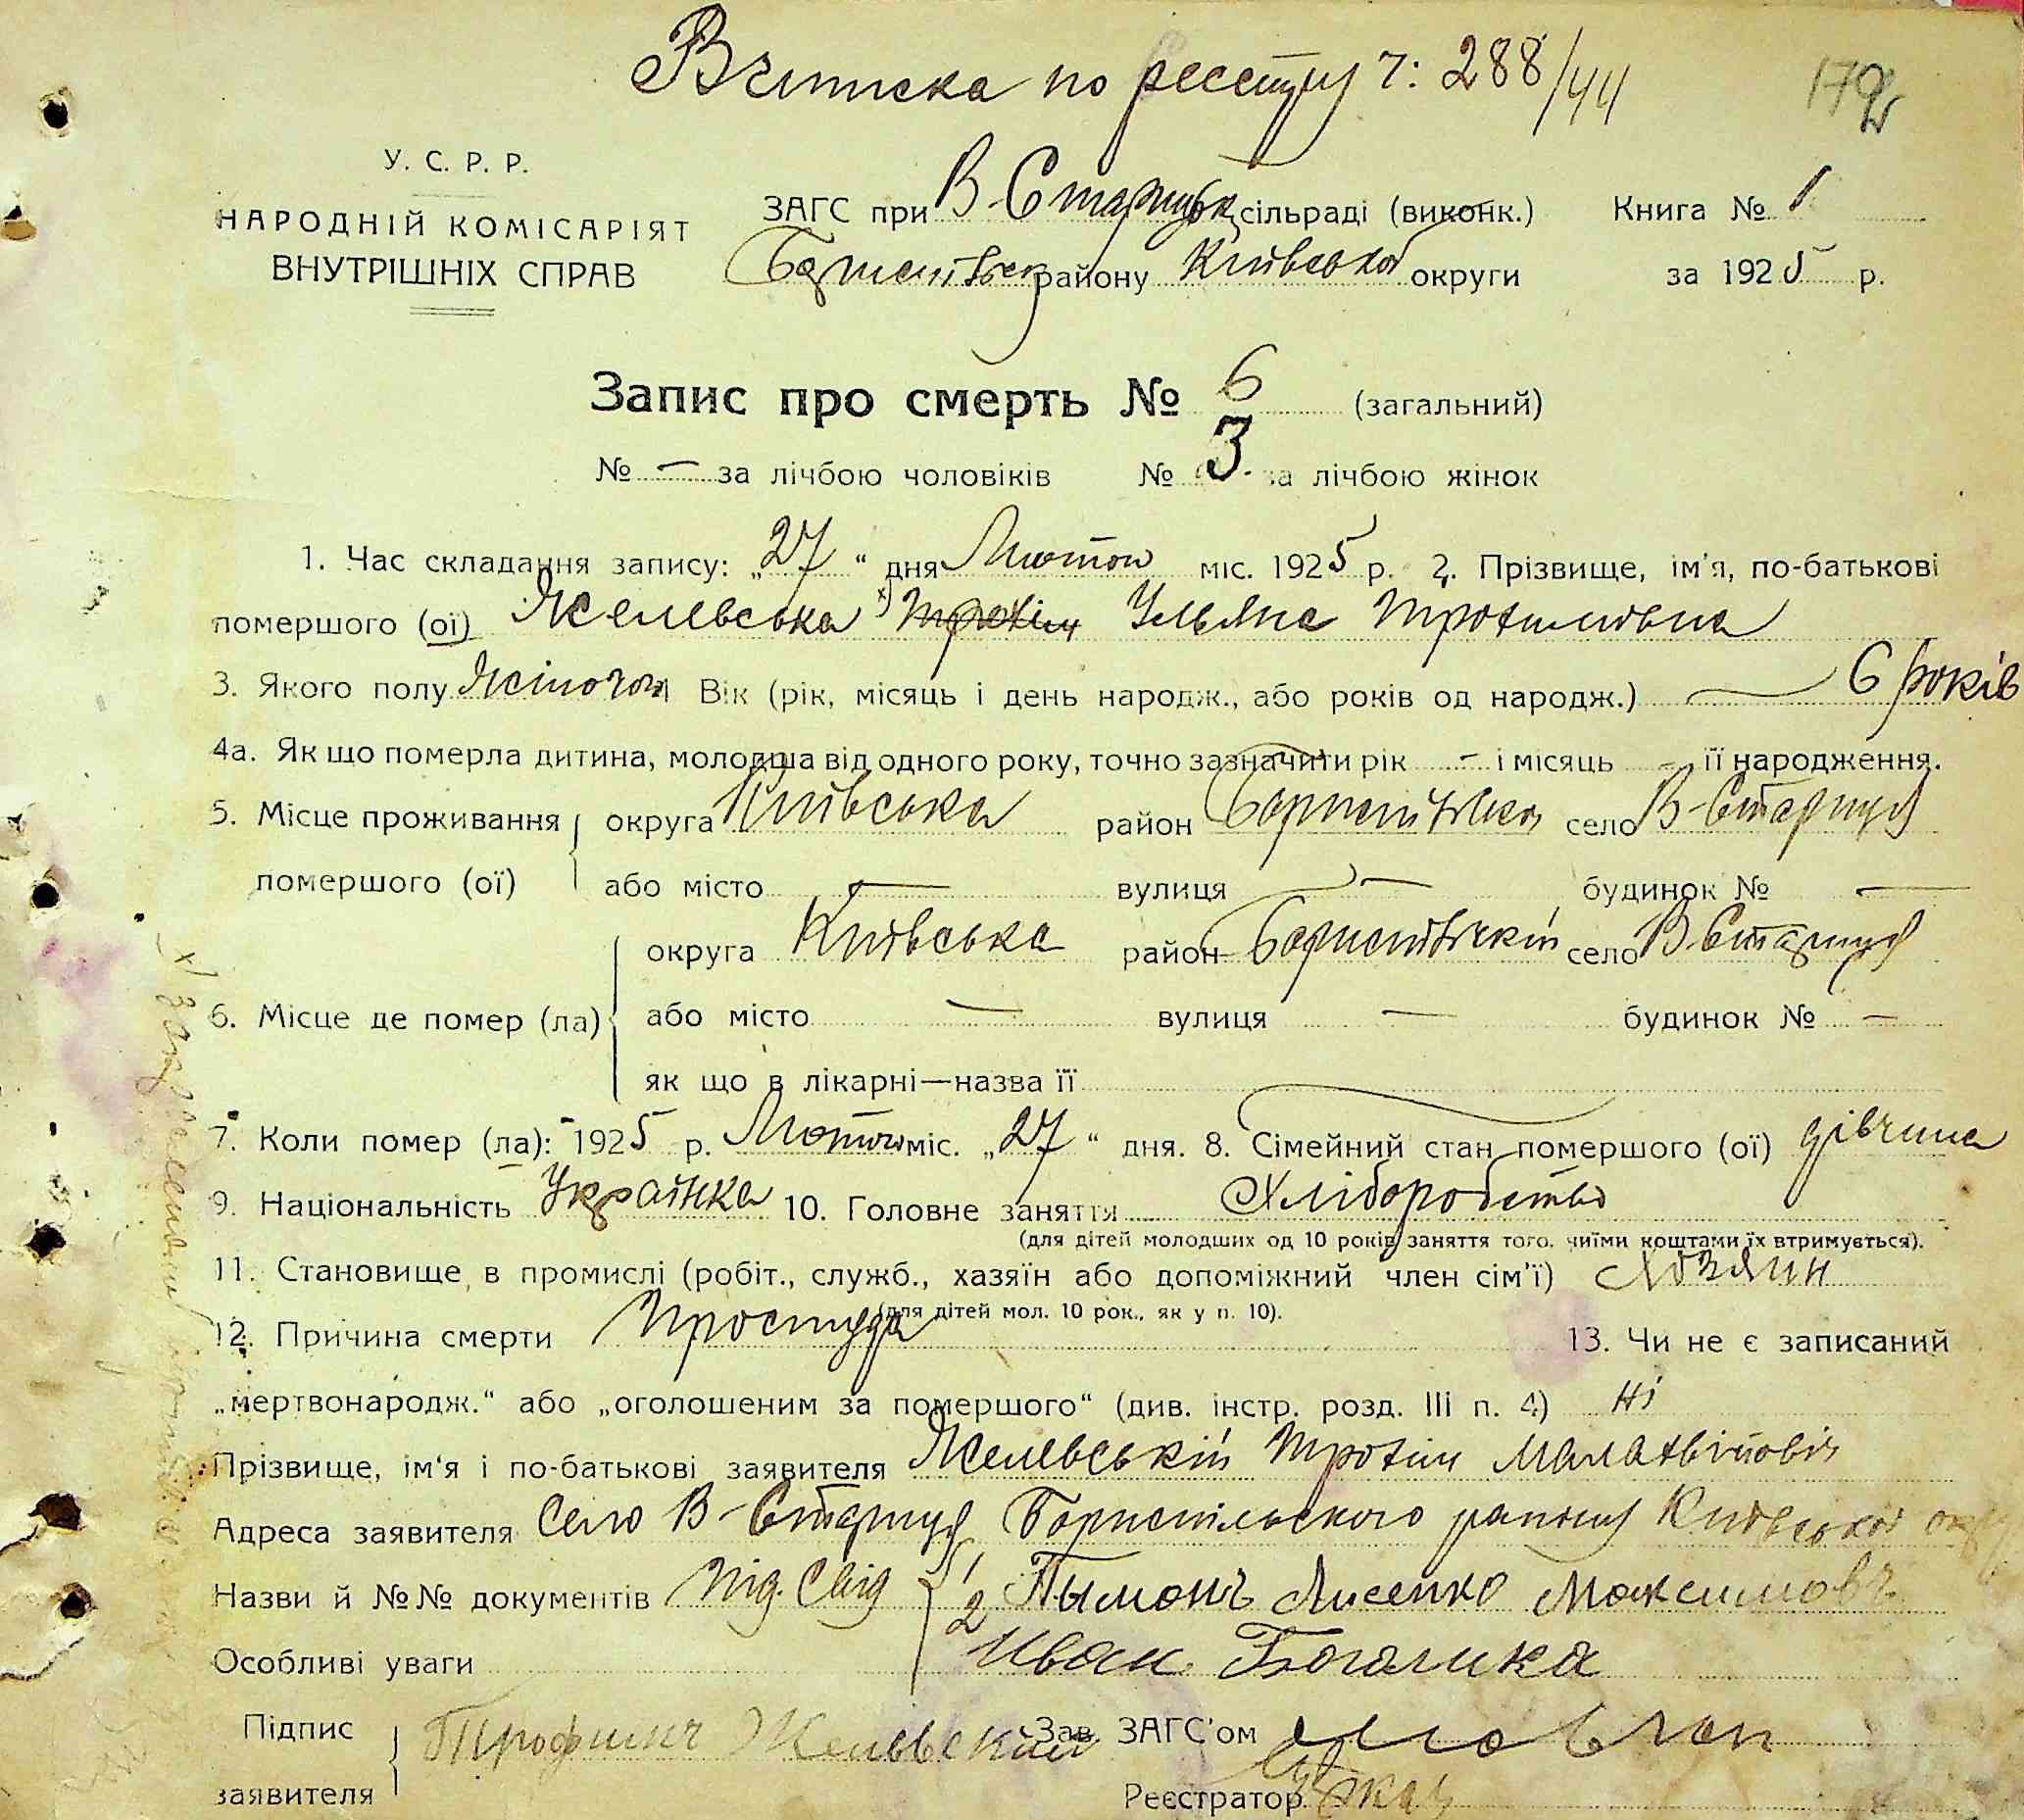 Вписка по реєстру ч: 288/44
179
У. С. Р. Р.
НАРОДНІЙ КОМІСАРІЯТ
ВНУТРІШНІХ СПРАВ
ЗАГС при В-Старицьк. сільраді (виконк.) Книга № 1
району Київської округи за 1925 р.
Запис про смерть № 6 (загальний)
№ — за лічбою чоловіків № 3. за лічбою жінок
1. Час складання запису: „27“ дня Лютого міс. 1925 р. 2. Прізвище, ім'я, по-батькові
помершого (ої) Желевська х) Трохім Ульяна Трохимовна
3. Якого полу Жіночої Вік (рік, місяць і день народж., або років од народж.) — 6 років
4а. Як що померла дитина, молодша від одного року, точно зазначити рік - і місяць - її народження.
5. Місце проживання округа Київська район село В-Стариця
помершого (ої) або місто — вулиця — будинок № —
округа Київська район Бориспільский село В-Стариця
6. Місце де помер (ла) або місто — вулиця — будинок № —
як що в лікарні—назва її
7. Коли помер (ла): 1925 р. Лютого міс. „27“ дня. 8. Сімейний стан помершого (ої) дівчина
9. Національність Українка 10. Головне заняття Хліборобство
(для дітей молодших од 10 років заняття того, чиїми коштами їх втримується).
11. Становище в промислі (робіт., служб., хазяїн або допоміжний член сім'ї) Хозяин
(для дітей мол. 10 рок., як у п. 10).
12. Причина смерти Простуда 13. Чи не є записаний
„мертвонародж.“ або „оголошеним за помершого“ (див. інстр. розд. III п. 4) Ні
Прізвище, ім'я і по-батькові заявителя Желевській Трохім
Адреса заявителя Село В-Стариця Бориспільського району Київської окр
Назви й №№ документів Під. Свід 1 Пымонъ Лисенко Максимовъ
2 Иван Богалика
Особливі уваги
Підпис Трофимъ Желевский Зав. ЗАГС'ом
заявителя Реєстратор